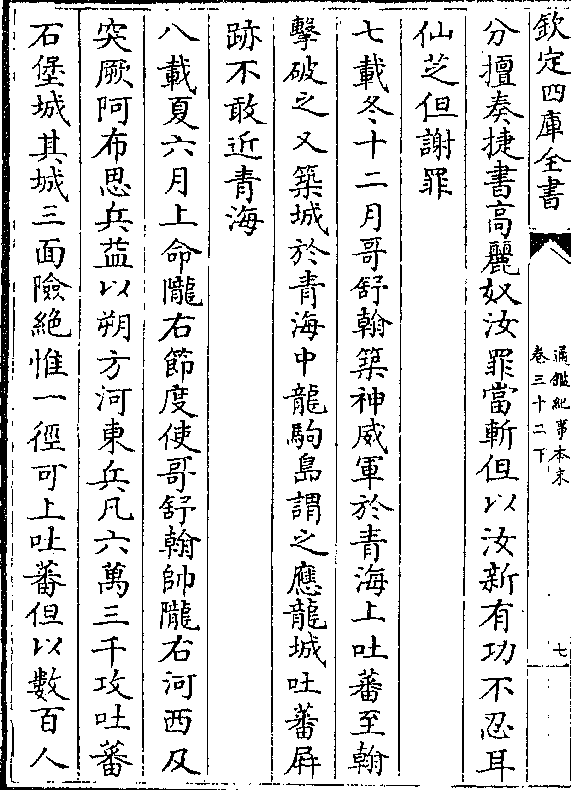 欽定四庫全書
通鑑紀事本末
卷三十二下
七
分擅奏捷書高麗奴汝罪當斬但以汝新有功不忍耳
仙芝但謝罪
七載冬十二月哥舒翰築神威軍於青海上吐蕃至翰
擊破之又築城於青海中龍駒島謂之應龍城吐蕃屏
跡不敢近青海
八載夏六月上命隴右節度使哥舒翰帥隴右河西及
突厥阿布思兵益以朔方河東兵凡六萬三千攻吐蕃
石堡城其城三面險絶惟一徑可上吐蕃但以數百人